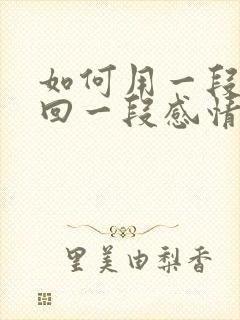 如何用一段
回一段感情
里美由梨香